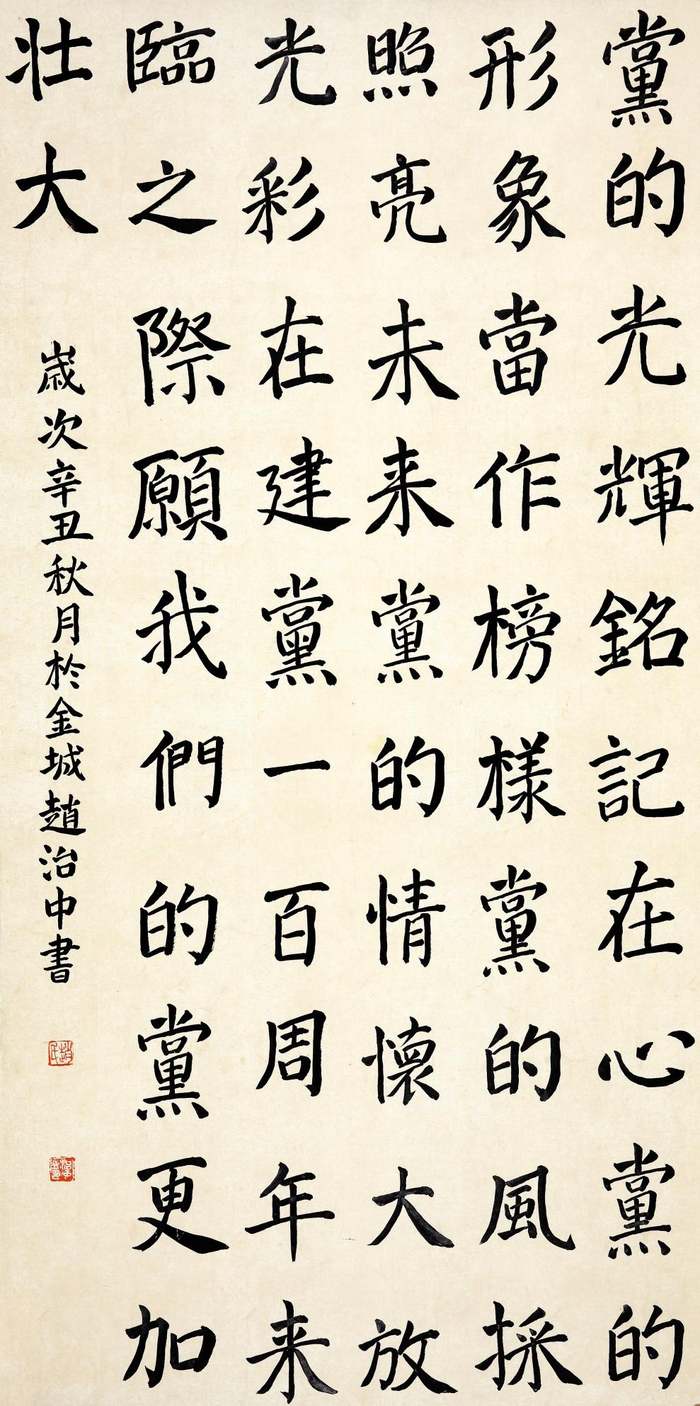 黨的光輝銘記在心黨的
形象當作榜樣黨的風採
照亮未来黨的情懷大放
光彩在建黨一百周年来
臨之際願我們的黨更加
壯大
歲次辛丑秋月於金城趙治中書